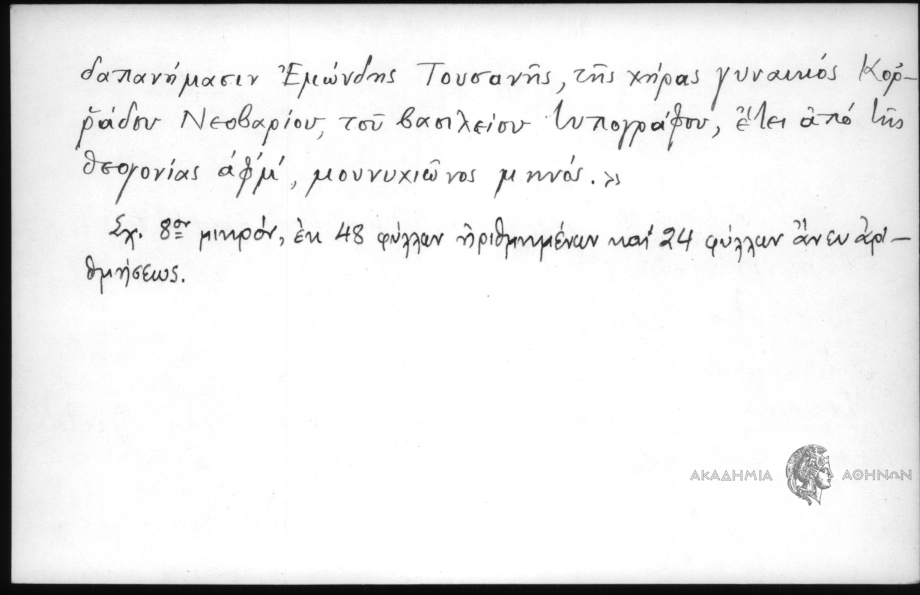 δαπανήμασιν Ἐμώνδης Τουσανῆς, τῆς χήρας γυναικός Κοῤ-
ῥάδου Νεοβαρίου, τοῦ βασιλείου τυπογράφου, ἔτει ἀπό τῆς
θεογονίας ἀφ́μ́, μουνυχιῶνος μηνός.»
Σχ. 8ον μικρόν, ἐκ 48 φύλλων ἠριθμημένων καί 24 φύλλων ἄνευ ἀρι-
θμήσεως.
ΑΚΑΔΗΜΙΑ ΑΘΗΝΩΝ